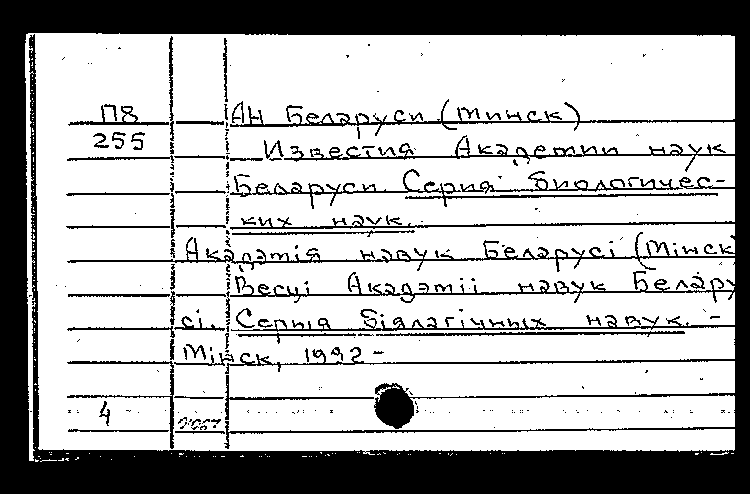 П8 АН Беларуси (Минск)
255 Известия Академии наук
Беларуси. Серия биологичес-
ких наук.
Акадэмія навук Беларусі (Мінск)
Весці Акадэміі навук Белару
сі. Серыя біялагічных навук. -
Мінск, 1992 -
4